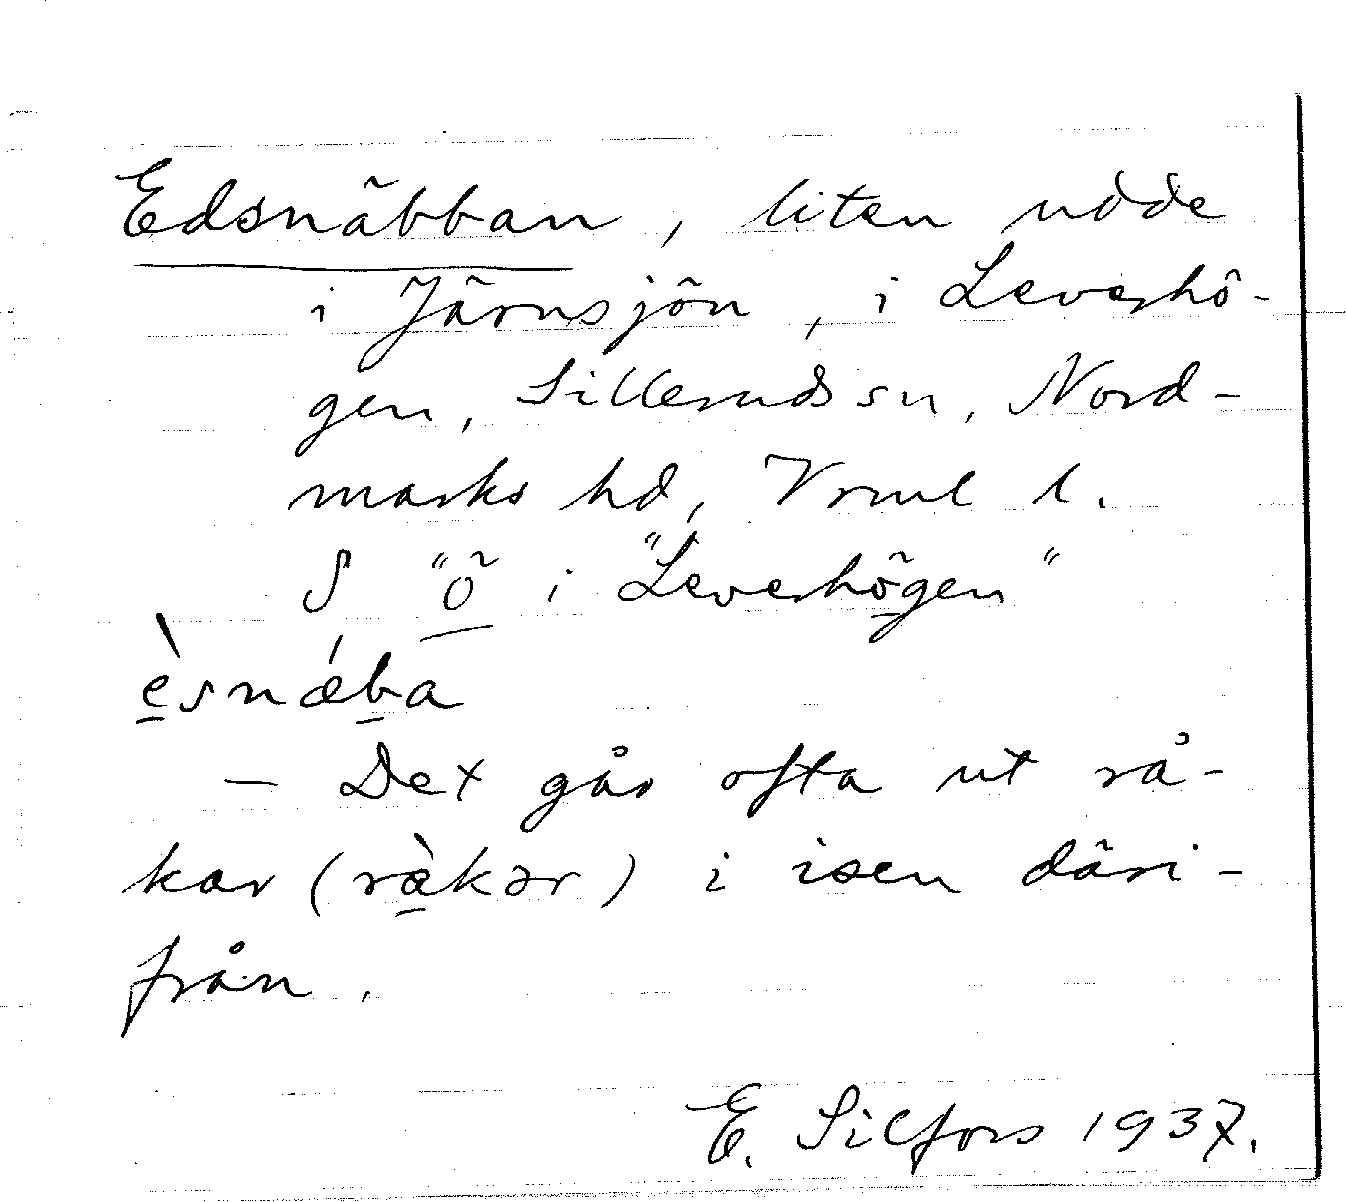 Edsnäbban, liten udde
i Järnsjön, i Leverhö-
gen, Sillerudssn, Nord-
marks hd, Vrml l.
S "ö i "Leverhögen"
èsnǽba
— Det går ofta ut rå-
kar (ràkər) i isen däri-
från.
E. Silfors 1937.